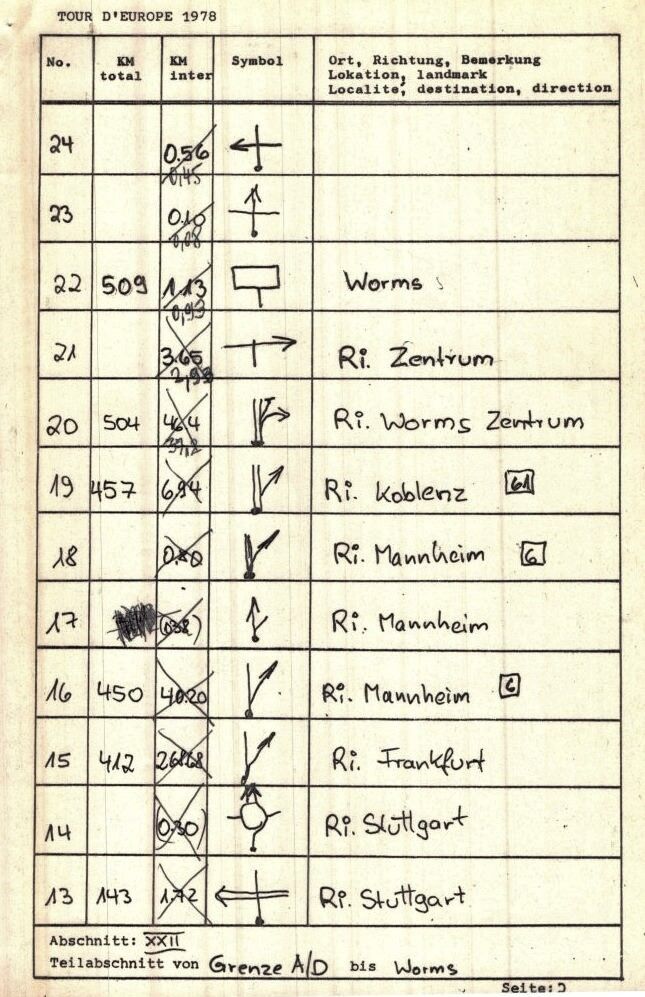 TOUR D'EUROPE 1978
No. KM total KM inter Symbol Ort, Richtung, Bemerkung
Lokation, landmark
Localite, destination, direction
24 0.56
0,45
23 0.10
0,08
22 509 1.13 Worms
0,93
21 3.65 Ri. Zentrum
2,93
20 504 46.4 Ri. Worms Zentrum
37,2
19 457 6.94 Ri. Koblenz 61
18 0.80 Ri. Mannheim 6
17 Ri. Mannheim
16 450 40.20 Ri. Mannheim 6
15 412 Ri. Frankfurt
14 (0.30) Ri. Stuttgart
13 143 1.72 Ri. Stuttgart
Abschnitt: XXII
Teilabschnitt von Grenze A/D bis Worms
Seite: